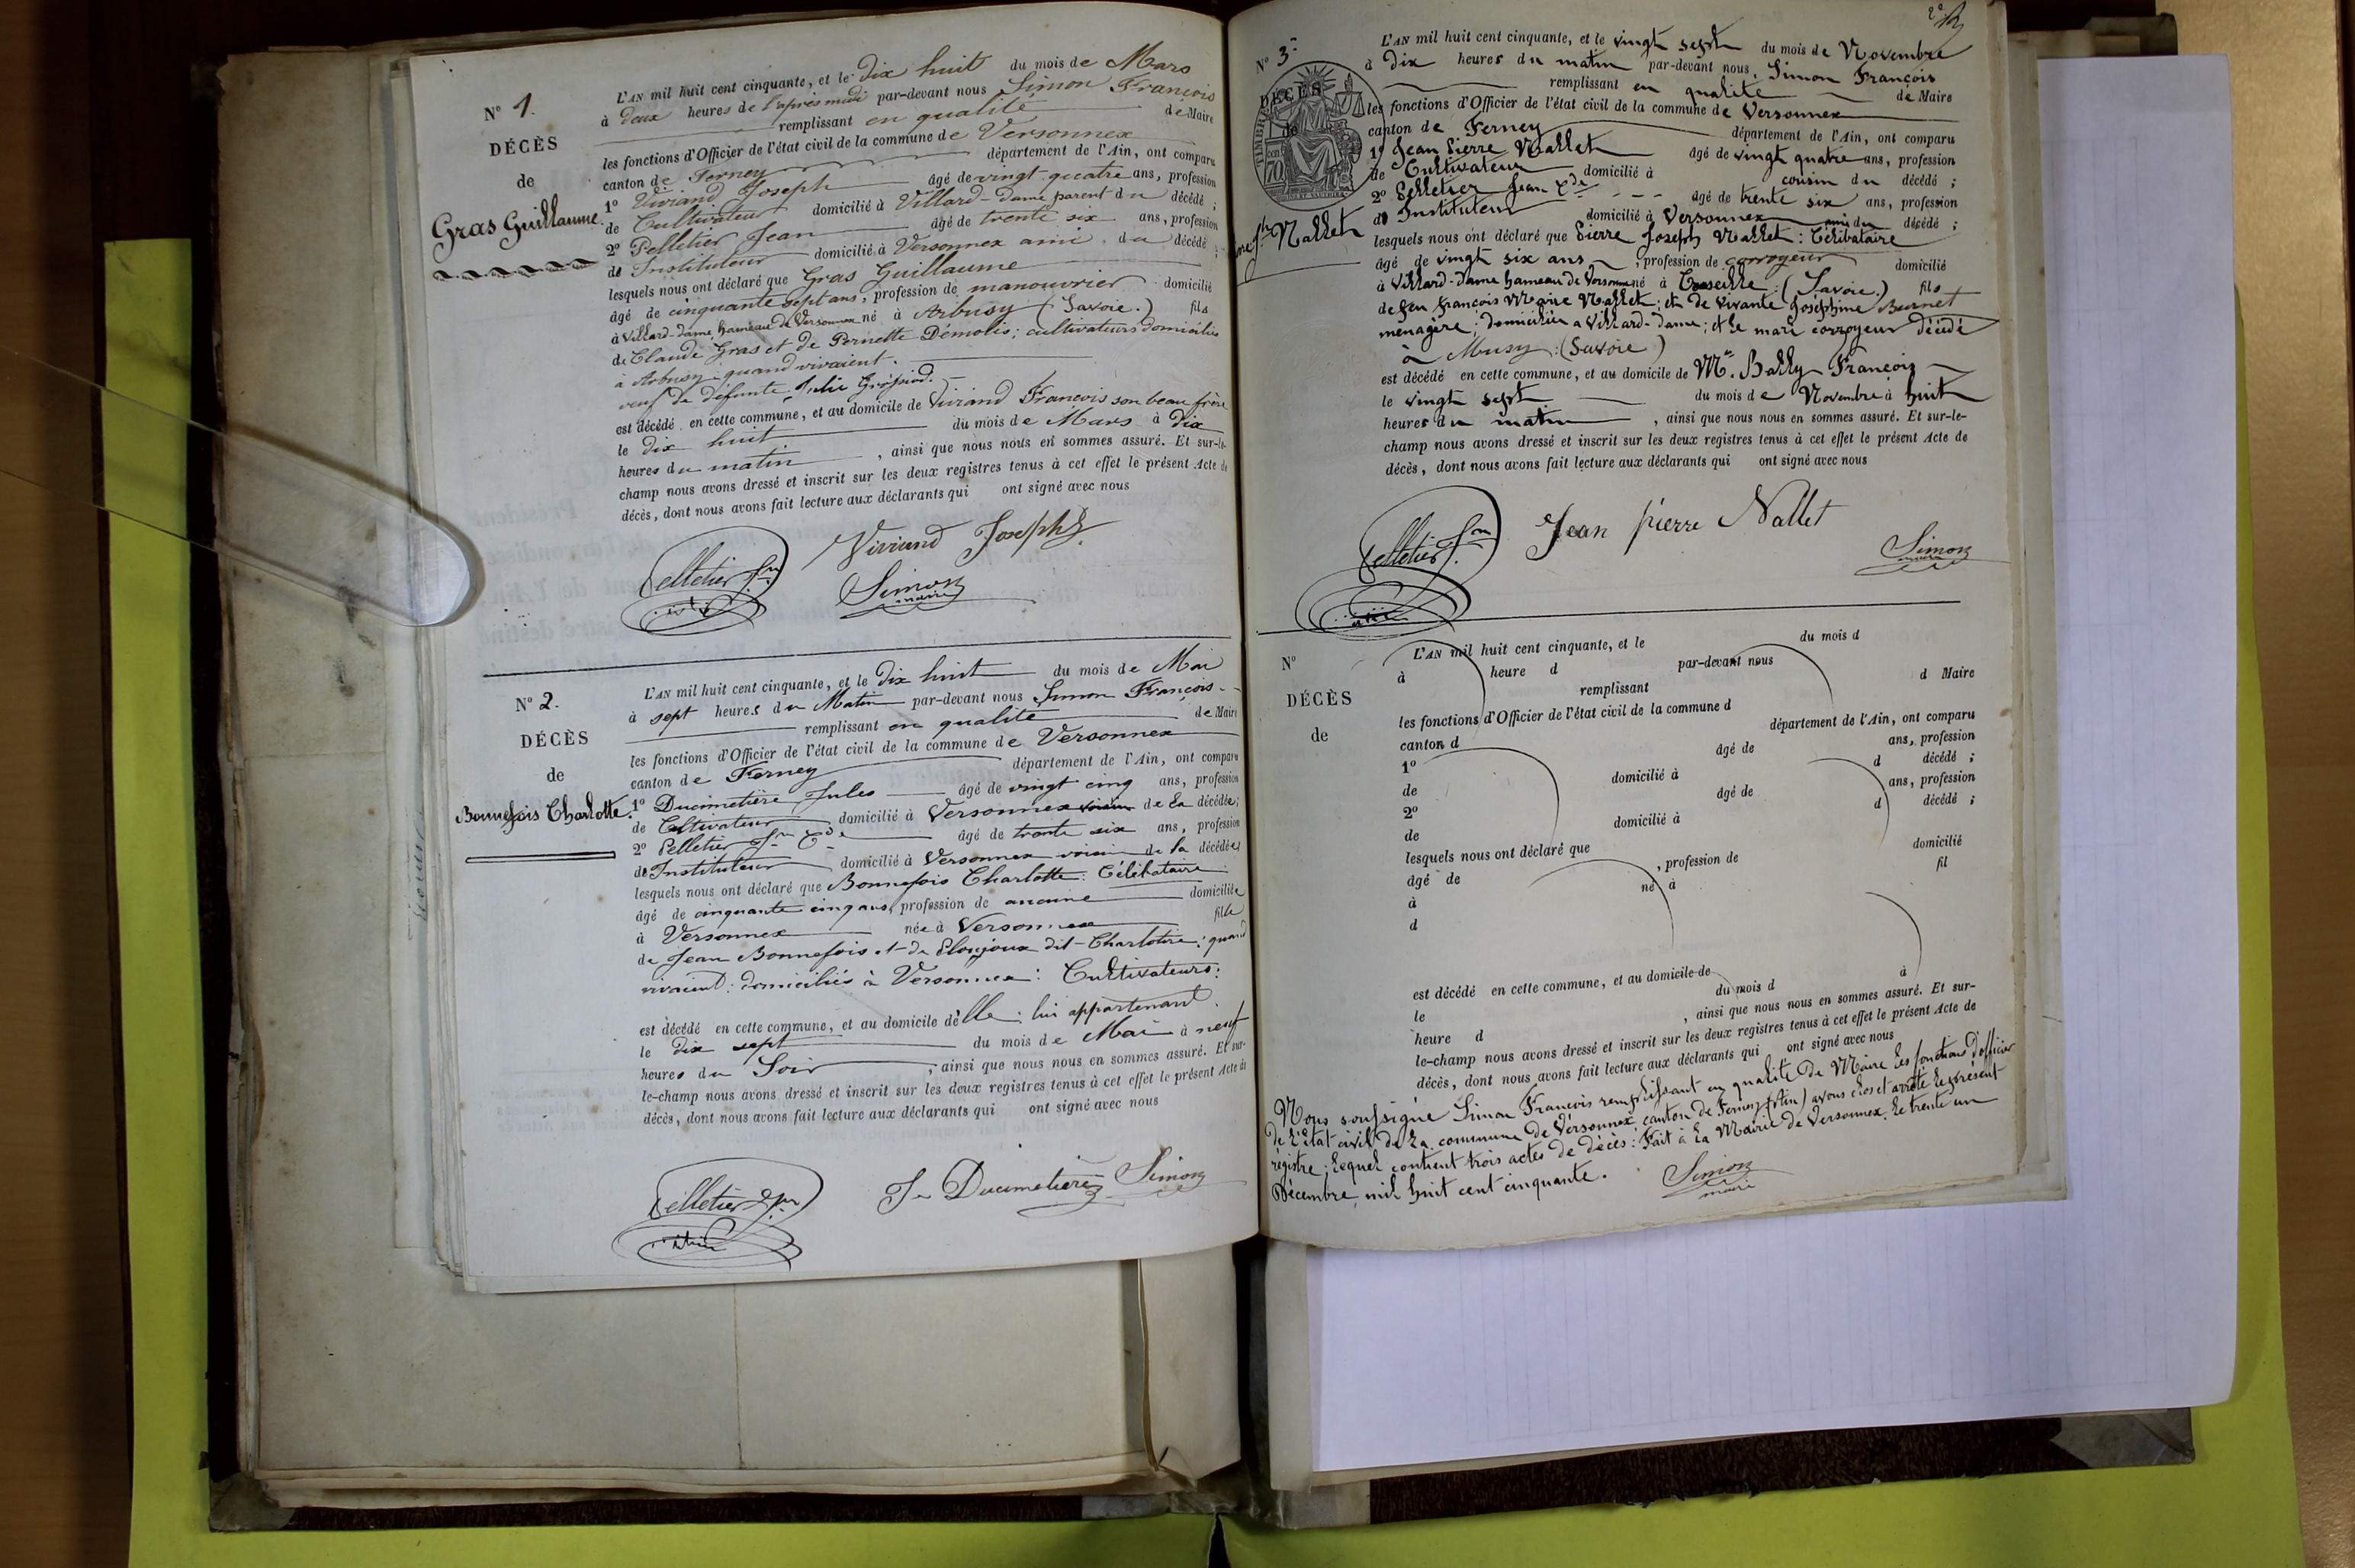 N° 1.
DÉCÈS
de
Gras Guillaume.
L'AN mil huit cent cinquante, et le dix huit du mois de Mars
à deux heures de l'après midi par-devant nous Simon François
remplissant en qualité de Maire
les fonctions d'Officier de l'état civil de la commune de Versonnex
canton de Ferney département de l'Ain, ont comparu
1° Viviand Joseph âgé de vingt quatre ans, profession
de Cultivateur domicilié à Villard-dame parent du décédé ;
2° Pelletier Jean âgé de trente six ans, profession
d' Instituteur domicilié à Versonnex ami du décédé ;
lesquels nous ont déclaré que Gras Guillaume
âgé de cinquante sept ans, profession de manouvrier domicilié
à Villard-dame hameau de Versonnex né à Arbusy (Savoie.) fils
de Claude Gras et de Pernette Démolis; cultivateurs domiciliés
à Arbusy quand vivaient.
veuf de défunte Julie
est décédé en cette commune, et au domicile de Viviand François son beau frère
le dix huit du mois de Mars à dix
heures du matin , ainsi que nous nous en sommes assuré. Et sur-le-
champ nous avons dressé et inscrit sur les deux registres tenus à cet effet le présent Acte de
décès, dont nous avons fait lecture aux déclarants qui ont signé avec nous
Pelletier Jn Viviand Joseph
Simon
maire
N° 2.
DÉCÈS
de
Bonnefois Charlotte.
L'AN mil huit cent cinquante, et le dix huit du mois de Mai
à sept heures du Matin par-devant nous Simon François
remplissant en qualité de Maire
les fonctions d'Officier de l'état civil de la commune de Versonnex
canton de Ferney département de l'Ain, ont comparu
1° Ducimetière Jules âgé de vingt cinq ans, profession
de Cultivateur domicilié à Versonnex voisin de la décédée;
2° Pelletier Jn Cde âgé de trente six ans, profession
d' Instituteur domicilié à Versonnex voisin de la décédée;
lesquels nous ont déclaré que Bonnefois Charlotte: Célibataire
âgé de cinquante cinq ans, profession de aucune domiciliée
à Versonnex née à Versonnex fille
de Jean Bonnefois et de Elonjoux dit-Charlotte; quand
vivaient: domiciliés à Versonnex: Cultivateurs:
est décédé en cette commune, et au domicile d'elle: lui appartenant.
le dix sept du mois de Mai à neuf
heures du Soir , ainsi que nous nous en sommes assuré. Et sur-
le-champ nous avons dressé et inscrit sur les deux registres tenus à cet effet le présent Acte de
décès, dont nous avons fait lecture aux déclarants qui ont signé avec nous
Pelletier Jn J Ducimetière Simon
N° 3
DÉCÈS
de
Nallet
L'AN mil huit cent cinquante, et le vingt sept du mois de Novembre
à dix heures du matin par-devant nous, Simon François
remplissant en qualité de Maire
les fonctions d'Officier de l'état civil de la commune de Versonnex
canton de Ferney département de l'Ain, ont comparu
1° Jean Pierre Nallet âgé de vingt quatre ans, profession
de Cultivateur domicilié à cousin du décédé ;
2° Pelletier Jean Cde âgé de trente six ans, profession
d' Instituteur domicilié à Versonnex ami du décédé ;
lesquels nous ont déclaré que Pierre Joseph Nallet: Célibataire
âgé de vingt six ans , profession de corroyeur domicilié
à Villard-dame hameau de Versonnex né à (Savoie.) fils
de feu François Marie Nallet; et de vivante Joséphine Burnet
ménagère; domiciliée à Villard-dame; et le mari corroyeur décédé
à Musy: (Savoie)
est décédé en cette commune, et au domicile de Mr. Bally François
le vingt sept du mois de Novembre à huit
heures du matin , ainsi que nous nous en sommes assuré. Et sur-le-
champ nous avons dressé et inscrit sur les deux registres tenus à cet effet le présent Acte de
décès, dont nous avons fait lecture aux déclarants qui ont signé avec nous
Pelletier Jn Jean pierre Nallet Simon
maire
N°
DÉCÈS
de
L'AN mil huit cent cinquante, et le du mois d
à heure d par-devant nous
remplissant d Maire
les fonctions d'Officier de l'état civil de la commune d
canton d département de l'Ain, ont comparu
1° âgé de ans, profession
de domicilié à d décédé ;
2° âgé de ans, profession
de domicilié à d décédé ;
lesquels nous ont déclaré que
âgé de , profession de domicilié
à né à fil
d
est décédé en cette commune, et au domicile de
le du mois d à
heure d , ainsi que nous nous en sommes assuré. Et sur-
le-champ nous avons dressé et inscrit sur les deux registres tenus à cet effet le présent Acte de
décès, dont nous avons fait lecture aux déclarants qui ont signé avec nous
Nous soussigné Simon François remplissant en qualité de Maire les fonctions d'officier
de l'état-civil de la commune de Versonnex canton de Ferney (Ain) avons clos et arrêté le présent
registre; lequel contient trois actes de décès: Fait à la Mairie de Versonnex le trente un
Décembre mil huit cent cinquante.
Simon
maire